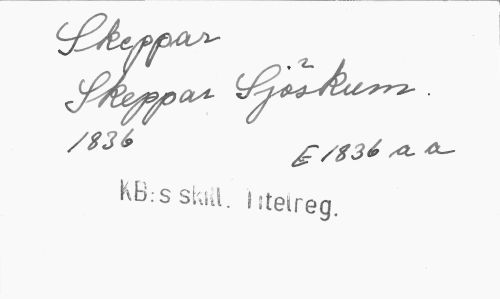 Skeppar
Skeppar Sjöskum.
1836
E 1836 a a
KB:s skill. Titelreg.